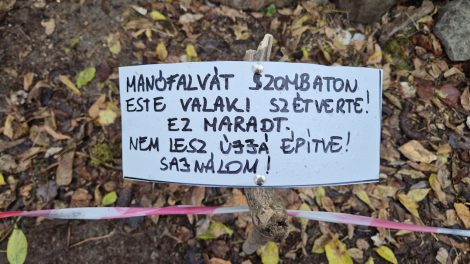 MANÓFALVÁT SZOMBATON
ESTE VALAKI SZÉTVERTE!
EZ MARADT.
NEM LESZ ÚJJÁ ÉPÍTVE!
SAJNÁLOM!